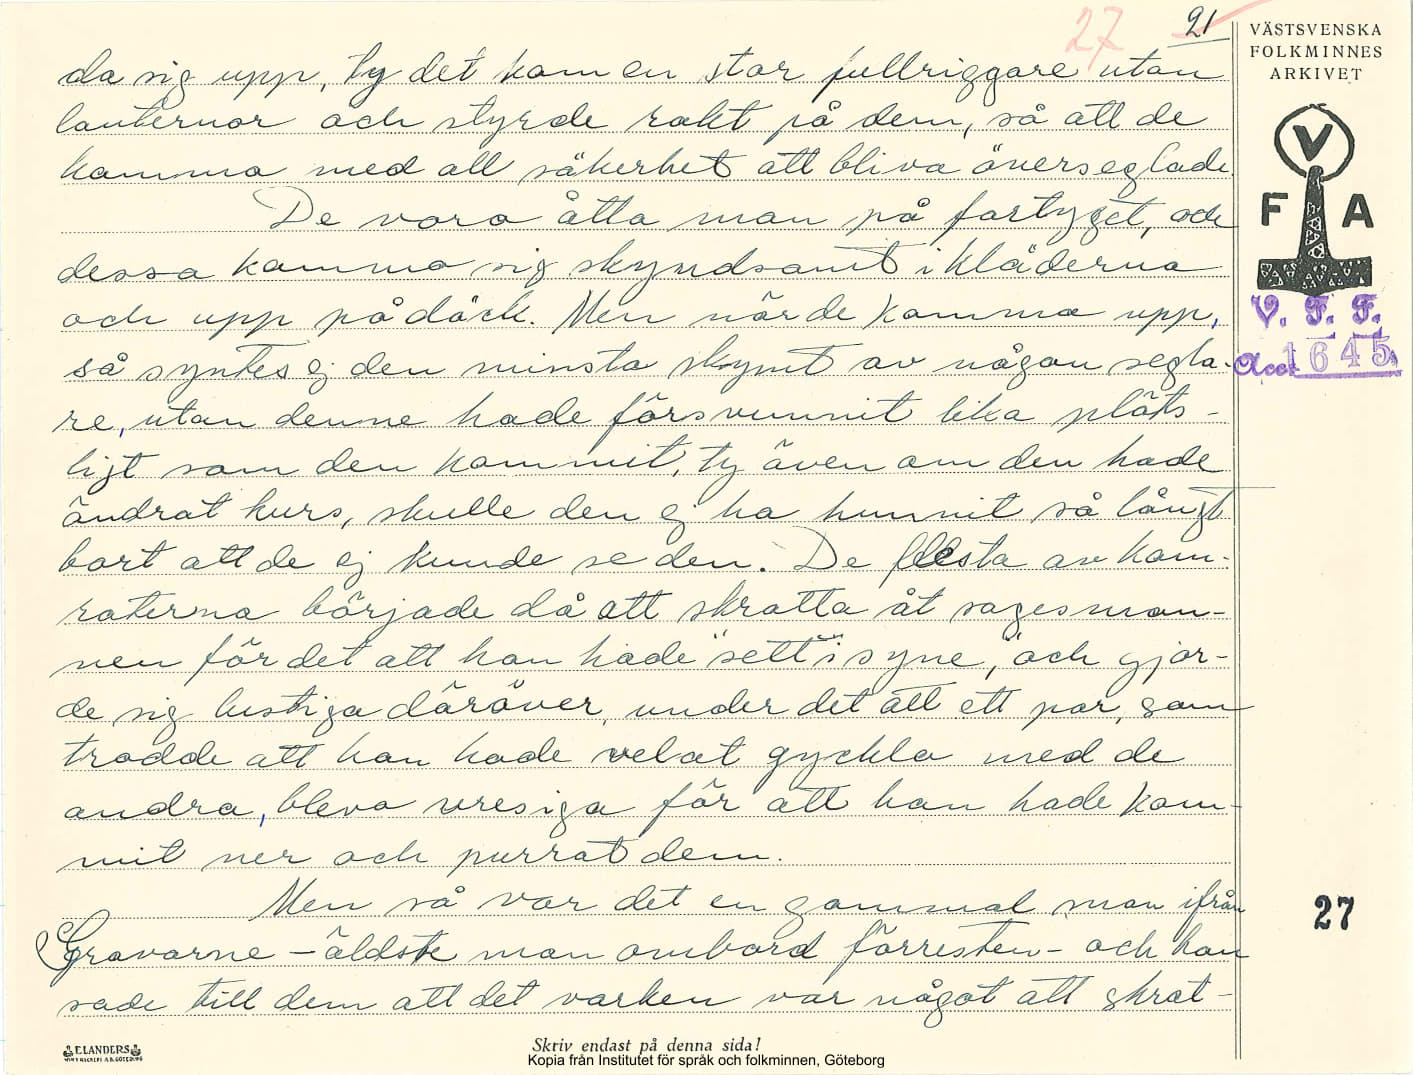 27 21
VÄSTSVENSKA
FOLKMINNES
ARKIVET
V
F A
V. F. F.
Acc. 1645
da sig upp, ty det kom en stor fullriggare utan
lanternor och styrde rakt på dem, så att de
kommo med all säkerhet att bliva överseglade.
De voro åtta man på fartyget, och
dessa kommo sig skyndsamt i kläderna
och upp på däck. Men när de kommo upp,
så syntes ej den minsta skymt av någon segla-
re, utan denne hade försvunnit lika plöts-
ligt som den kommit, ty även om den hade
ändrat kurs, skulle den ej ha hunnit så långt
bort att de ej kunde se den. De flesta av kam-
raterna började då att skratta åt sagesman-
nen för det att han hade "sett i syne," och gjor-
de sig lustiga däröver, under det att ett par, som
trodde att han hade velat gyckla med de
andra, blevo vresiga för att han hade kom-
mit ner och purrat dem.
Men så var det en gammal man ifrån
Gravarne - äldste man ombord förresten - och han
sade till dem att det varken var något att skrat-
27
ELANDERS
Skriv endast på denna sida!
Kopia från Institutet för språk och folkminnen, Göteborg